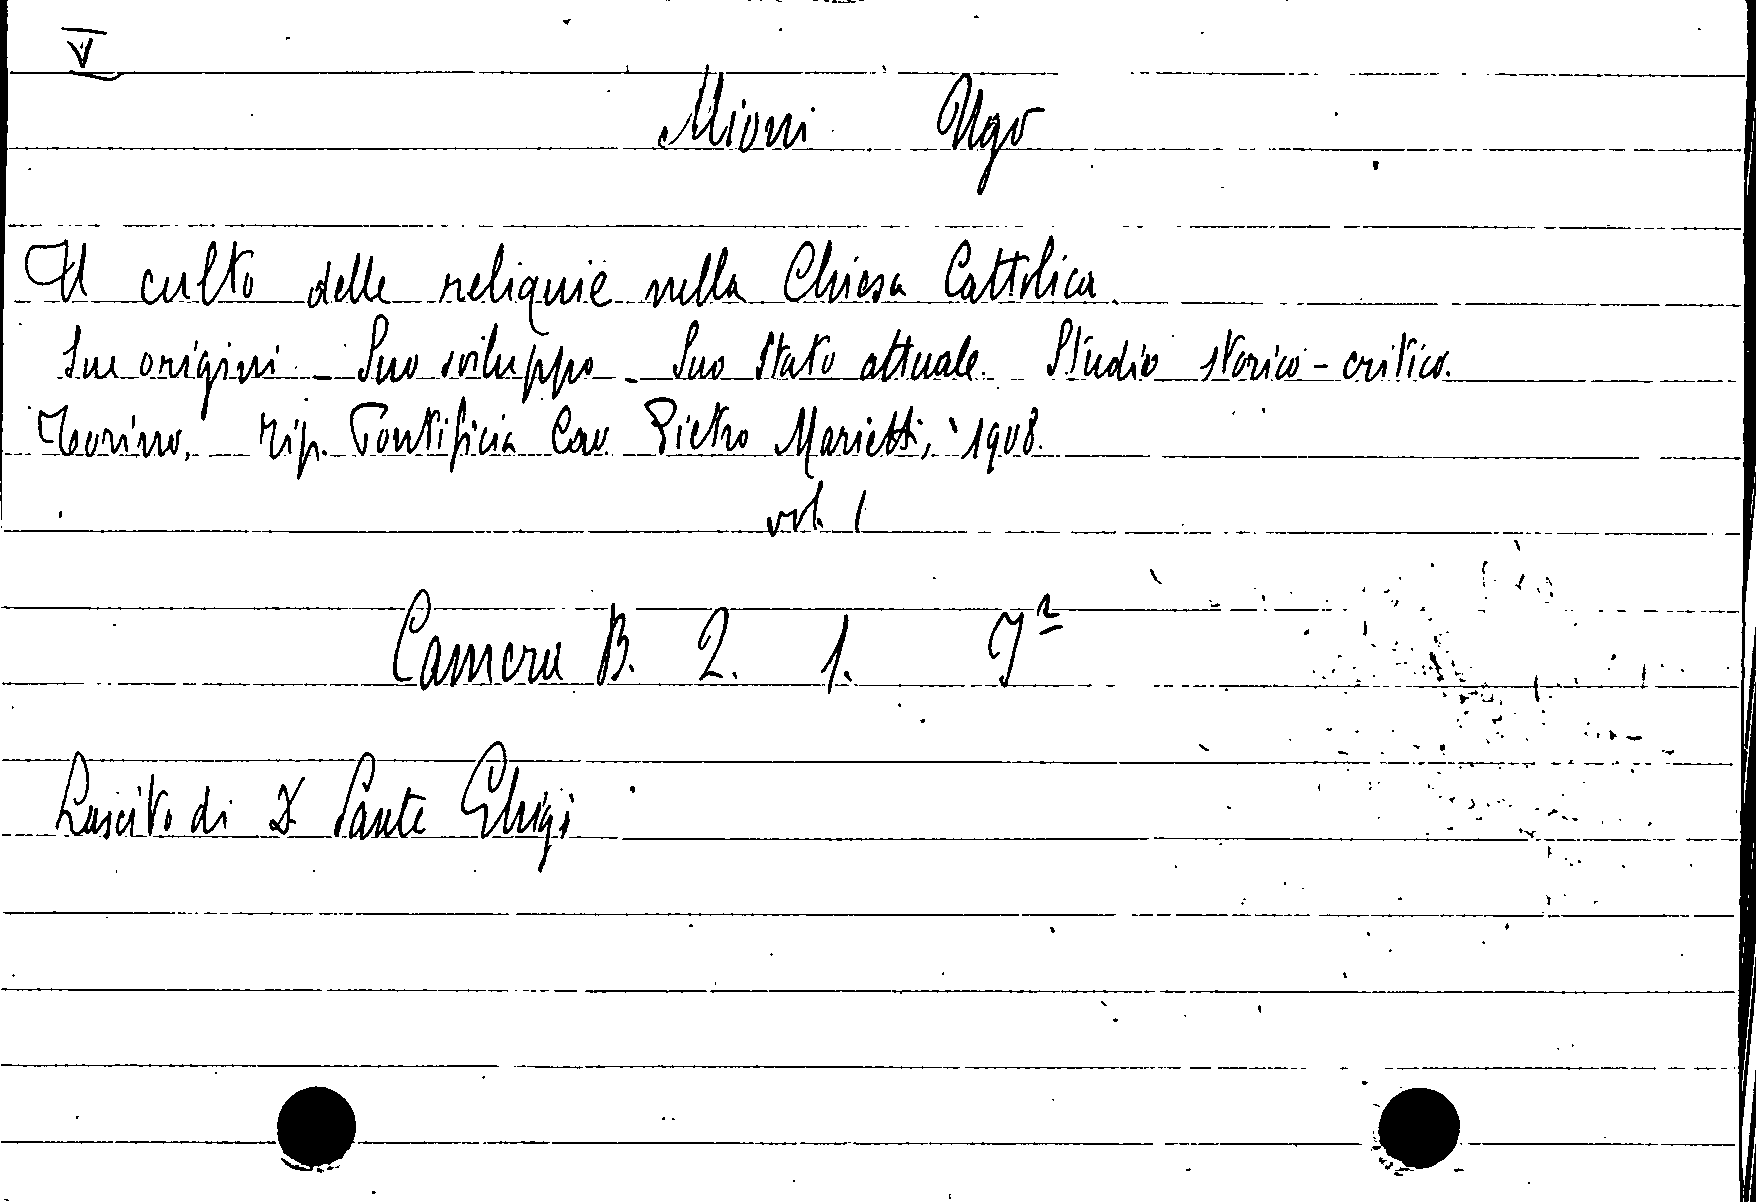 V
Mioni Ugo
Il culto delle reliquie nella Chiesa Cattolica.
Sue origini - Suo sviluppo - Suo stato attuale. Studio storico-critico.
Torino, Tip. Pontificia Cav. Pietro Marietti, 1908.
vol. 1
Camera B. 2. 1.
Lascito di D. Sante Ghigi